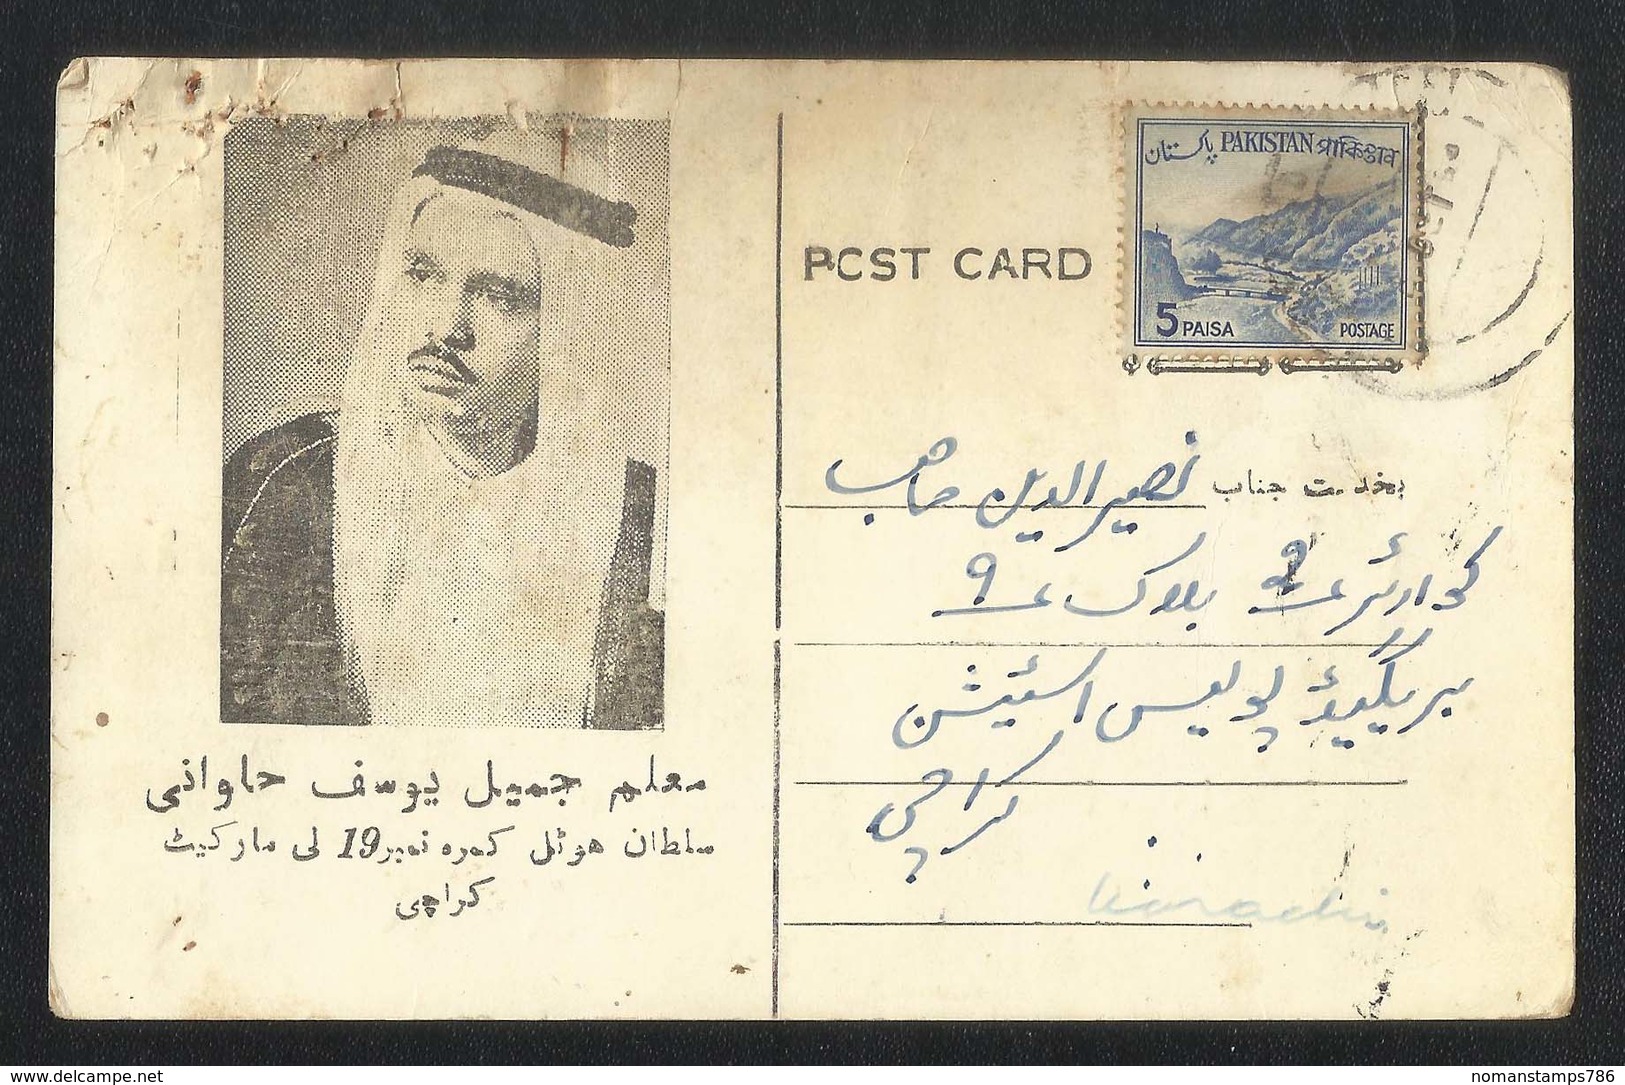 پاکستان PAKISTAN পাকিস্তান
5 PAISA POSTAGE
POST CARD
بخدمت جناب نصیر الدین صاحب
کوارٹر ؏ 9 بلاک ؏ 9
بریگیڈ پولیس اسٹیشن
کراچی
karachi
معلم جمیل یوسف حلوانی
سلطان ھوٹل کمرہ نمبر 19 لی مارکیٹ
کراچی
www.delcampe.net
nomanstamps786